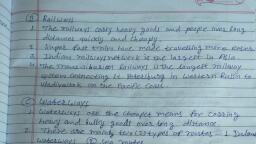 (B) Railways
1. The railways carry heavy goods and people over long
distances quickly and cheaply.
2. Super fast trains have made travelling more easier
3. Indian railways network is the largest in Asia
4. The Trans-Siberian Railways is the longest railway
system connecting St. Petersburg in Western Russia to
Vladivostok on the Pacific Coast
(C) Waterways
1. Waterways are the cheapest means for carrying
heavy and bulky goods over long distance
2. There are mainly two (2) types of routes - 1 Inland
waterways (2) sea routes